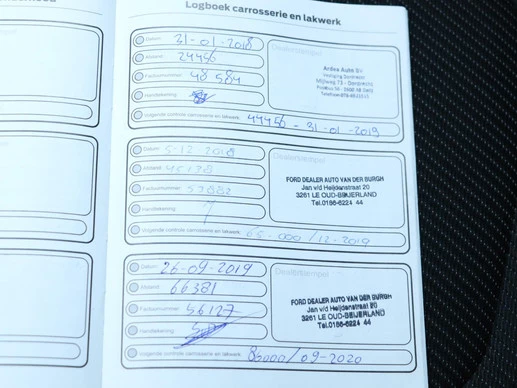 Logboek carrosserie en lakwerk
Datum: 31-01-2018
Afstand: 24456
Factuurnummer: 48 584
Handtekening:
Volgende controle carrosserie en lakwerk: 44456 - 31-01-2019
Dealerstempel
Ardea Auto
Datum: 5-12-2018
Afstand: 45138
Factuurnummer: 53882
Handtekening:
Volgende controle carrosserie en lakwerk: 65-000/12-2019
Dealerstempel
FORD DEALER AUTO VAN DER BURGH
Jan v/d Heijdenstraat 20
3261 LE OUD-BEIJERLAND
Tel.0186-6224 44
Datum: 26-09-2019
Afstand: 66381
Factuurnummer: 56127
Handtekening:
Volgende controle carrosserie en lakwerk: 86000/09-2020
Dealerstempel
FORD DEALER AUTO VAN DER BURGH
Jan v/d Heijdenstraat 20
3261 LE OUD-BEIJERLAND
Tel.0186-6224 44